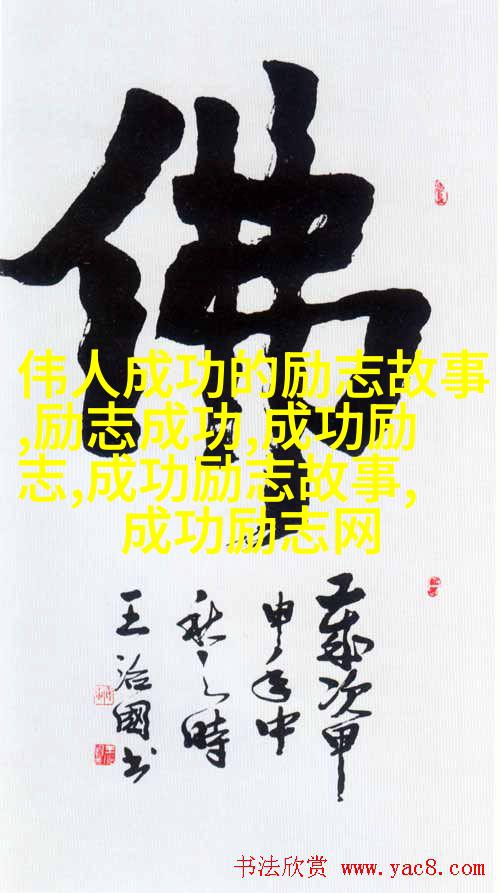 佛
伟人成功的励志故事
,励志成功,成功励
志,成功励志故事,
成功励志网
歲次甲
申年中
秋之時
王治國书
书法欣赏 www.yac8.com